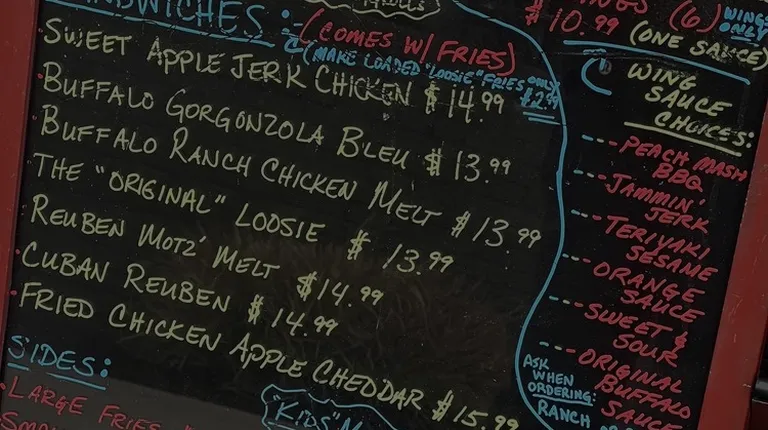 SANDWICHES:
(COMES W/ FRIES)
(MAKE LOADED "LOOSIE" FRIES ONLY $2.99
• SWEET APPLE JERK CHICKEN $14.99
• BUFFALO GORGONZOLA BLEU $13.99
• BUFFALO RANCH CHICKEN MELT $13.99
• THE "ORIGINAL" LOOSIE $13.99
• REUBEN MOTZ' MELT $14.99
• CUBAN REUBEN $14.99
• FRIED CHICKEN APPLE CHEDDAR $15.99
SIDES:
• LARGE FRIES
"KIDS"
(6) WINGS ONLY
$10.99 (ONE SAUCE)
WING
SAUCE
CHOICES:
--- PEACH MASH
BBQ
--- JAMMIN'
JERK
--- TERIYAKI
SESAME
--- ORANGE
SAUCE
--- SWEET &
SOUR
--- ORIGINAL
BUFFALO
SAUCE
ASK
WHEN
ORDERING:
RANCH